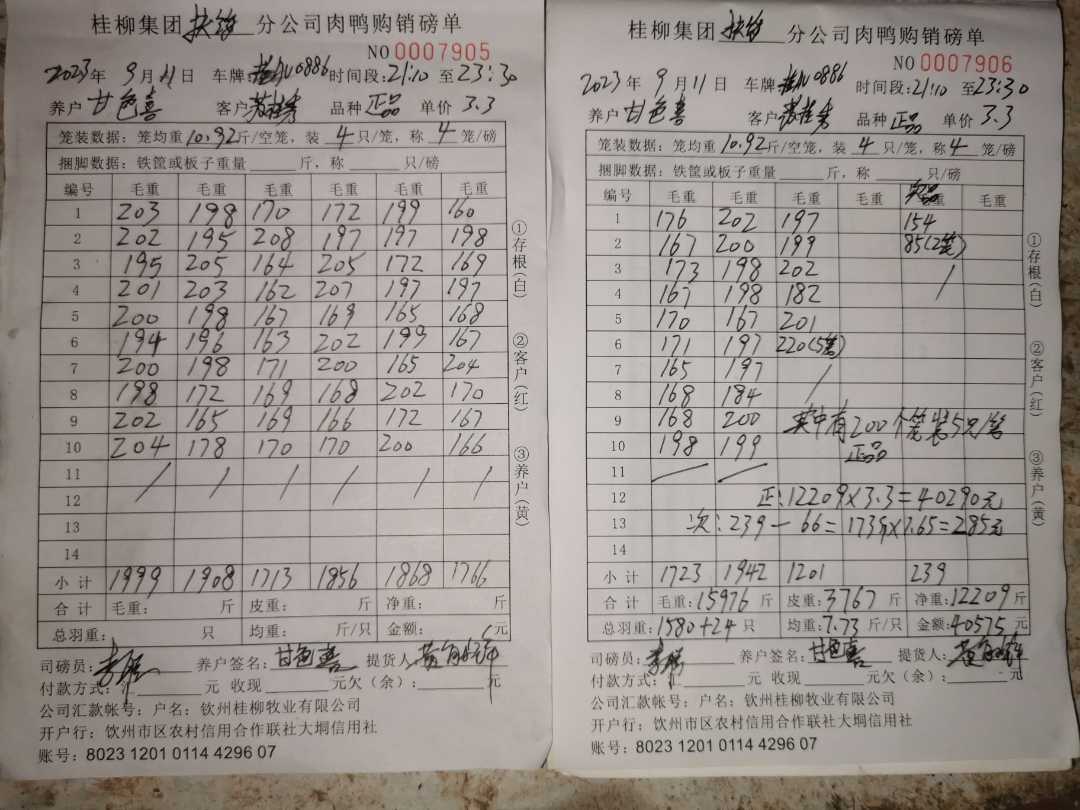 桂柳集团扶绥分公司肉鸭购销磅单
NO 0007905
2023年9月11日 车牌:桂N0886 时间段:21:10至23:30
养户甘色喜 客户 品种正品 单价3.3
笼装数据:笼均重10.92斤/空笼,装4只/笼,称4笼/磅
捆脚数据:铁筐或板子重量 斤,称 只/磅
编号 毛重 毛重 毛重 毛重 毛重 毛重
1 203 198 170 172 199 160
2 202 195 208 197 197 198
3 195 205 164 205 172 169
4 201 203 162 207 197 197
5 200 198 167 169 165 168
6 194 196 163 202 199 167
7 200 198 171 200 165 204
8 198 172 169 168 202 170
9 202 165 169 166 172 167
10 204 178 170 170 200 166
11 / / / / / /
12
13
14
小计 1999 1908 1713 1856 1868 1766
合计 毛重: 斤 皮重: 斤 净重: 斤
总羽重: 只 均重: 斤/只 金额: 元
司磅员: 养户签名:甘色喜 提货人:
付款方式: 元 收现 元欠(余): 元
公司汇款帐号:户名:钦州桂柳牧业有限公司
开户行:钦州市区农村信用合作联社大垌信用社
账号:8023 1201 0114 4296 07
①存根(白)
②客户(红)
③养户(黄)
桂柳集团扶绥分公司肉鸭购销磅单
NO 0007906
2023年9月11日 车牌:桂N0886 时间段:21:10至23:30
养户甘色喜 客户 品种正品 单价3.3
笼装数据:笼均重10.92斤/空笼,装4只/笼,称4笼/磅
捆脚数据:铁筐或板子重量 斤,称 只/磅
编号 毛重 毛重 毛重 毛重 次品 毛重
1 176 202 197 154
2 167 200 199 85(2笼)
3 173 198 202 /
4 167 198 182
5 170 167 201
6 171 197 220(5笼)
7 165 197 /
8 168 184
9 168 200 其中有200个笼装5只/笼
10 198 199 正品
11 / /
12 正:12209×3.3=40290元
13 次:239-66=173斤×1.65=285元
14
小计 1723 1942 1201 239
合计 毛重:15976斤 皮重:3767斤 净重:12209斤
总羽重:1580+24只 均重:7.73斤/只 金额:40575元
司磅员: 养户签名:甘色喜 提货人:
付款方式: 元 收现 元欠(余): 元
公司汇款帐号:户名:钦州桂柳牧业有限公司
开户行:钦州市区农村信用合作联社大垌信用社
账号:8023 1201 0114 4296 07
①存根(白)
②客户(红)
③养户(黄)